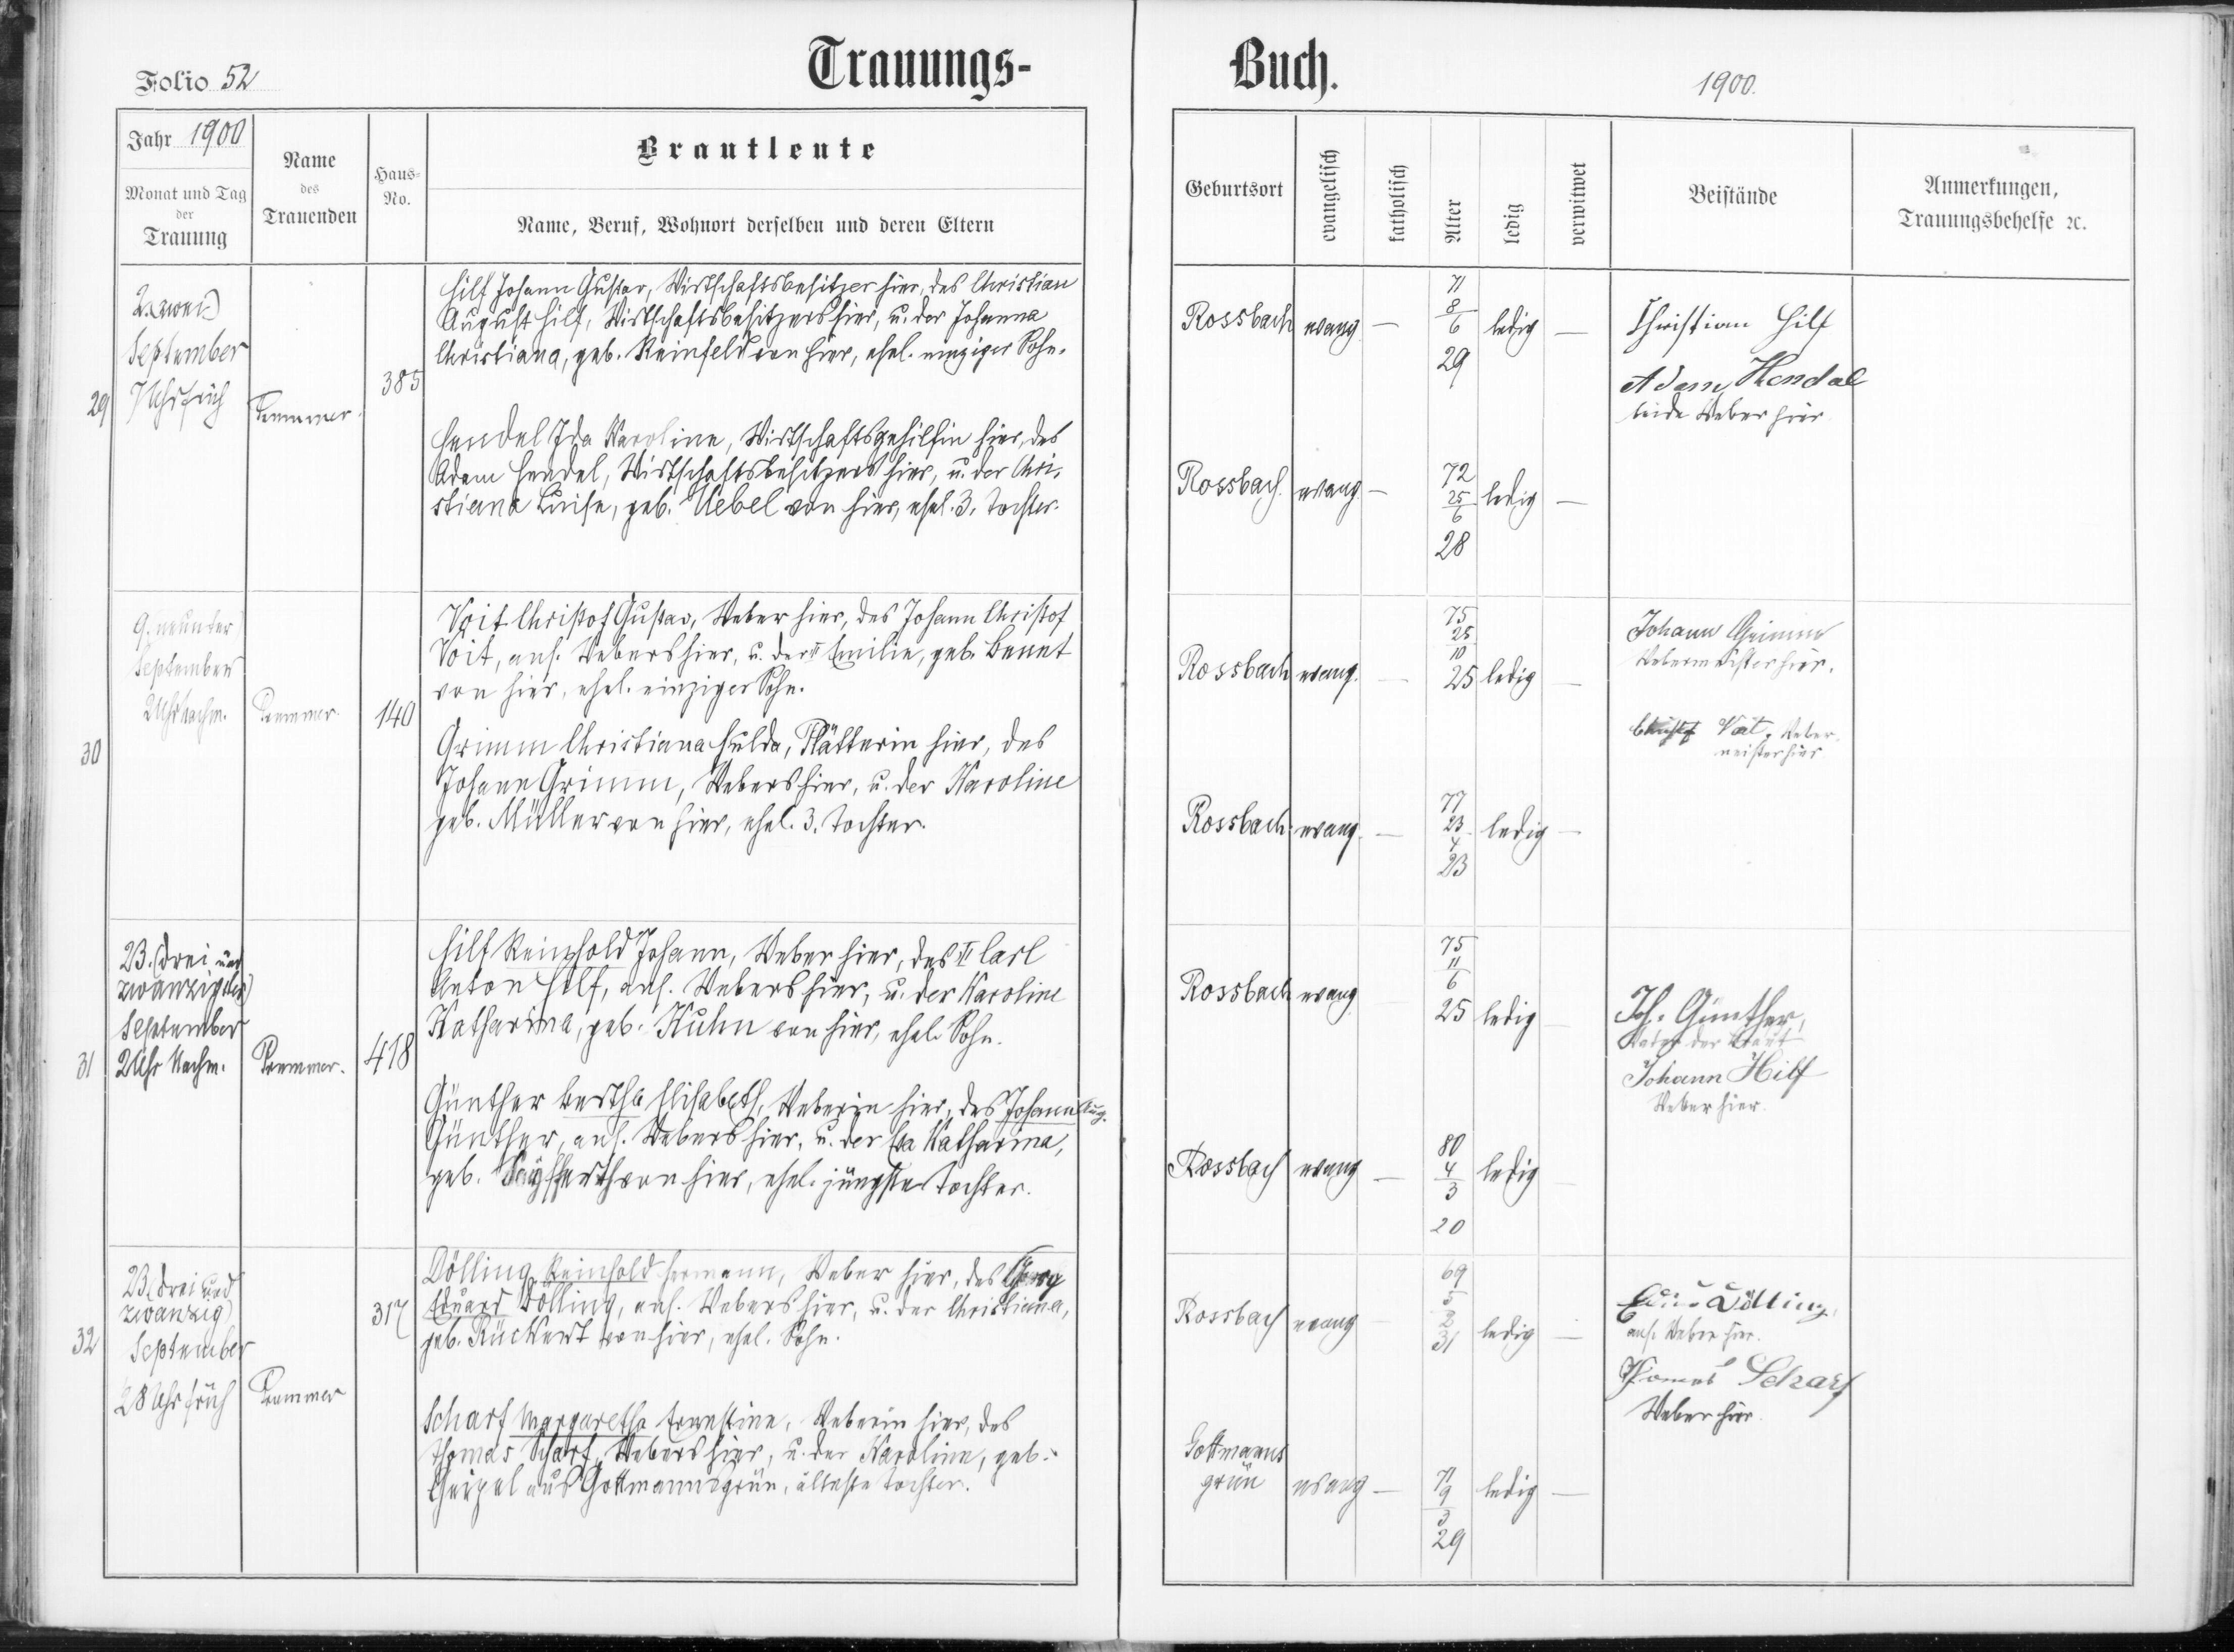 Folio 52
Trauungs-
Buch.
1900.
Jahr 1900
Monat und Tag
der
Trauung
Name
des
Trauenden
Haus-
No.
Brautleute
Name, Beruf, Wohnort derselben und deren Eltern
Geburtsort
evangelisch
katholisch
Alter
ledig
verwitwet
Beistände
Anmerkungen,
Trauungsbehelfe ꝛc.
29
2. (zwei)
September
7 Uhr früh
385
Hilf Johann Gustav, Wirtschaftsbesitzer hier, des Christian
August Hilf, Wirtschaftsbesitzers hier, u. der Johanna
Christiana, geb. Reinfeld von hier, ehel. einziger Sohn.
Hendel Ida Karoline, Wirtschaftsgehilfin hier, des
Adam Hendel, Wirtschaftsbesitzers hier, u. der Chri-
stiana Luise, geb. Uebel von hier, ehel. 3. Tochter.
Rossbach evang. — 71 8/6 29 ledig —
Christian Hilf
Adam Hendel
beide Weber hier.
Rossbach evang — 72 25/6 28 ledig —
30
9. neunter)
September
2 Uhr Nachm.
140
Voit Christof Gustav, Weber hier, des Johann Christof
Voit, ans. Webers hier, u. der Emilie, geb. Bennet
von hier, ehel. einziger Sohn.
Grimm Christiana Hulda, Plätterin hier, des
Johann Grimm, Webers hier, u. der Karoline
geb. Müller von hier, ehel. 3. Tochter.
Rossbach evang. — 75 25/10 25 ledig —
Johann Grimm
Webermeister hier.
Christof Voit, Weber-
meister hier
Rossbach evang. — 77 23/4 23 ledig —
31
23. (drei und
zwanzigster)
September
2 Uhr Nachm.
418
Hilf Reinhold Johann, Weber hier, des Carl
Anton Hilf, ans. Webers hier, u. der Karoline
Katharina, geb. Kuhn von hier, ehel. Sohn.
Günther Bertha Elisabeth, Weberin hier, des Johann Aug.
Günther, ans. Webers hier, u. der Eva Katharina,
geb. Seyfferth von hier, ehel. jüngste Tochter.
Rossbach evang 75 11/6 25 ledig
Joh. Günther,
Vater der Braut
Johann Hilf
Weber hier.
Rossbach evang — 80 4/3 20 ledig
32
23. (drei und
zwanzig)
September
8 Uhr früh
317
Dölling Reinhold Hermann, Weber hier, des Georg
Eduard Dölling, ans. Webers hier, u. der Christiana,
geb. Rückert von hier, ehel. Sohn.
Scharf Margaretha Ernestine, Weberin hier, des
Thomas Scharf, Webers hier, u. der Karoline, geb.
Geipel aus Gottmannsgrün, älteste Tochter.
Rossbach evang 69 5/2 31 ledig —
Dölling,
ans. Weber hier.
Thomas Scharf
Weber hier.
Gottmanns
grün evang — 71 9/3 29 ledig —